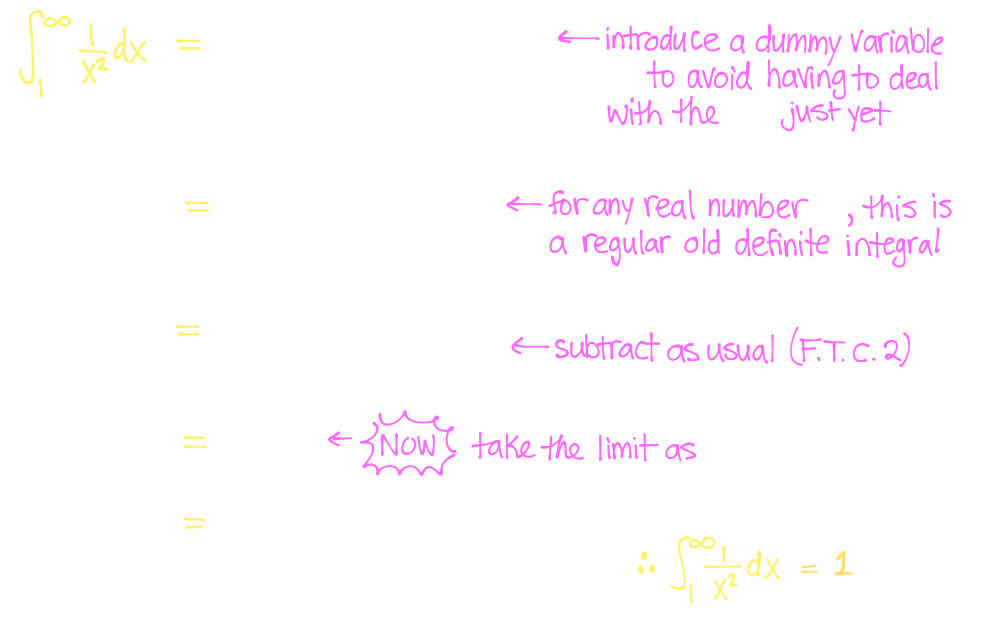 ∫₁^∞ 1/x² dx = ← introduce a dummy variable
to avoid having to deal
with the just yet
= ← for any real number , this is
a regular old definite integral
=
← subtract as usual (F.T.C. 2)
= ← NOW take the limit as
=
∴ ∫₁^∞ 1/x² dx = 1